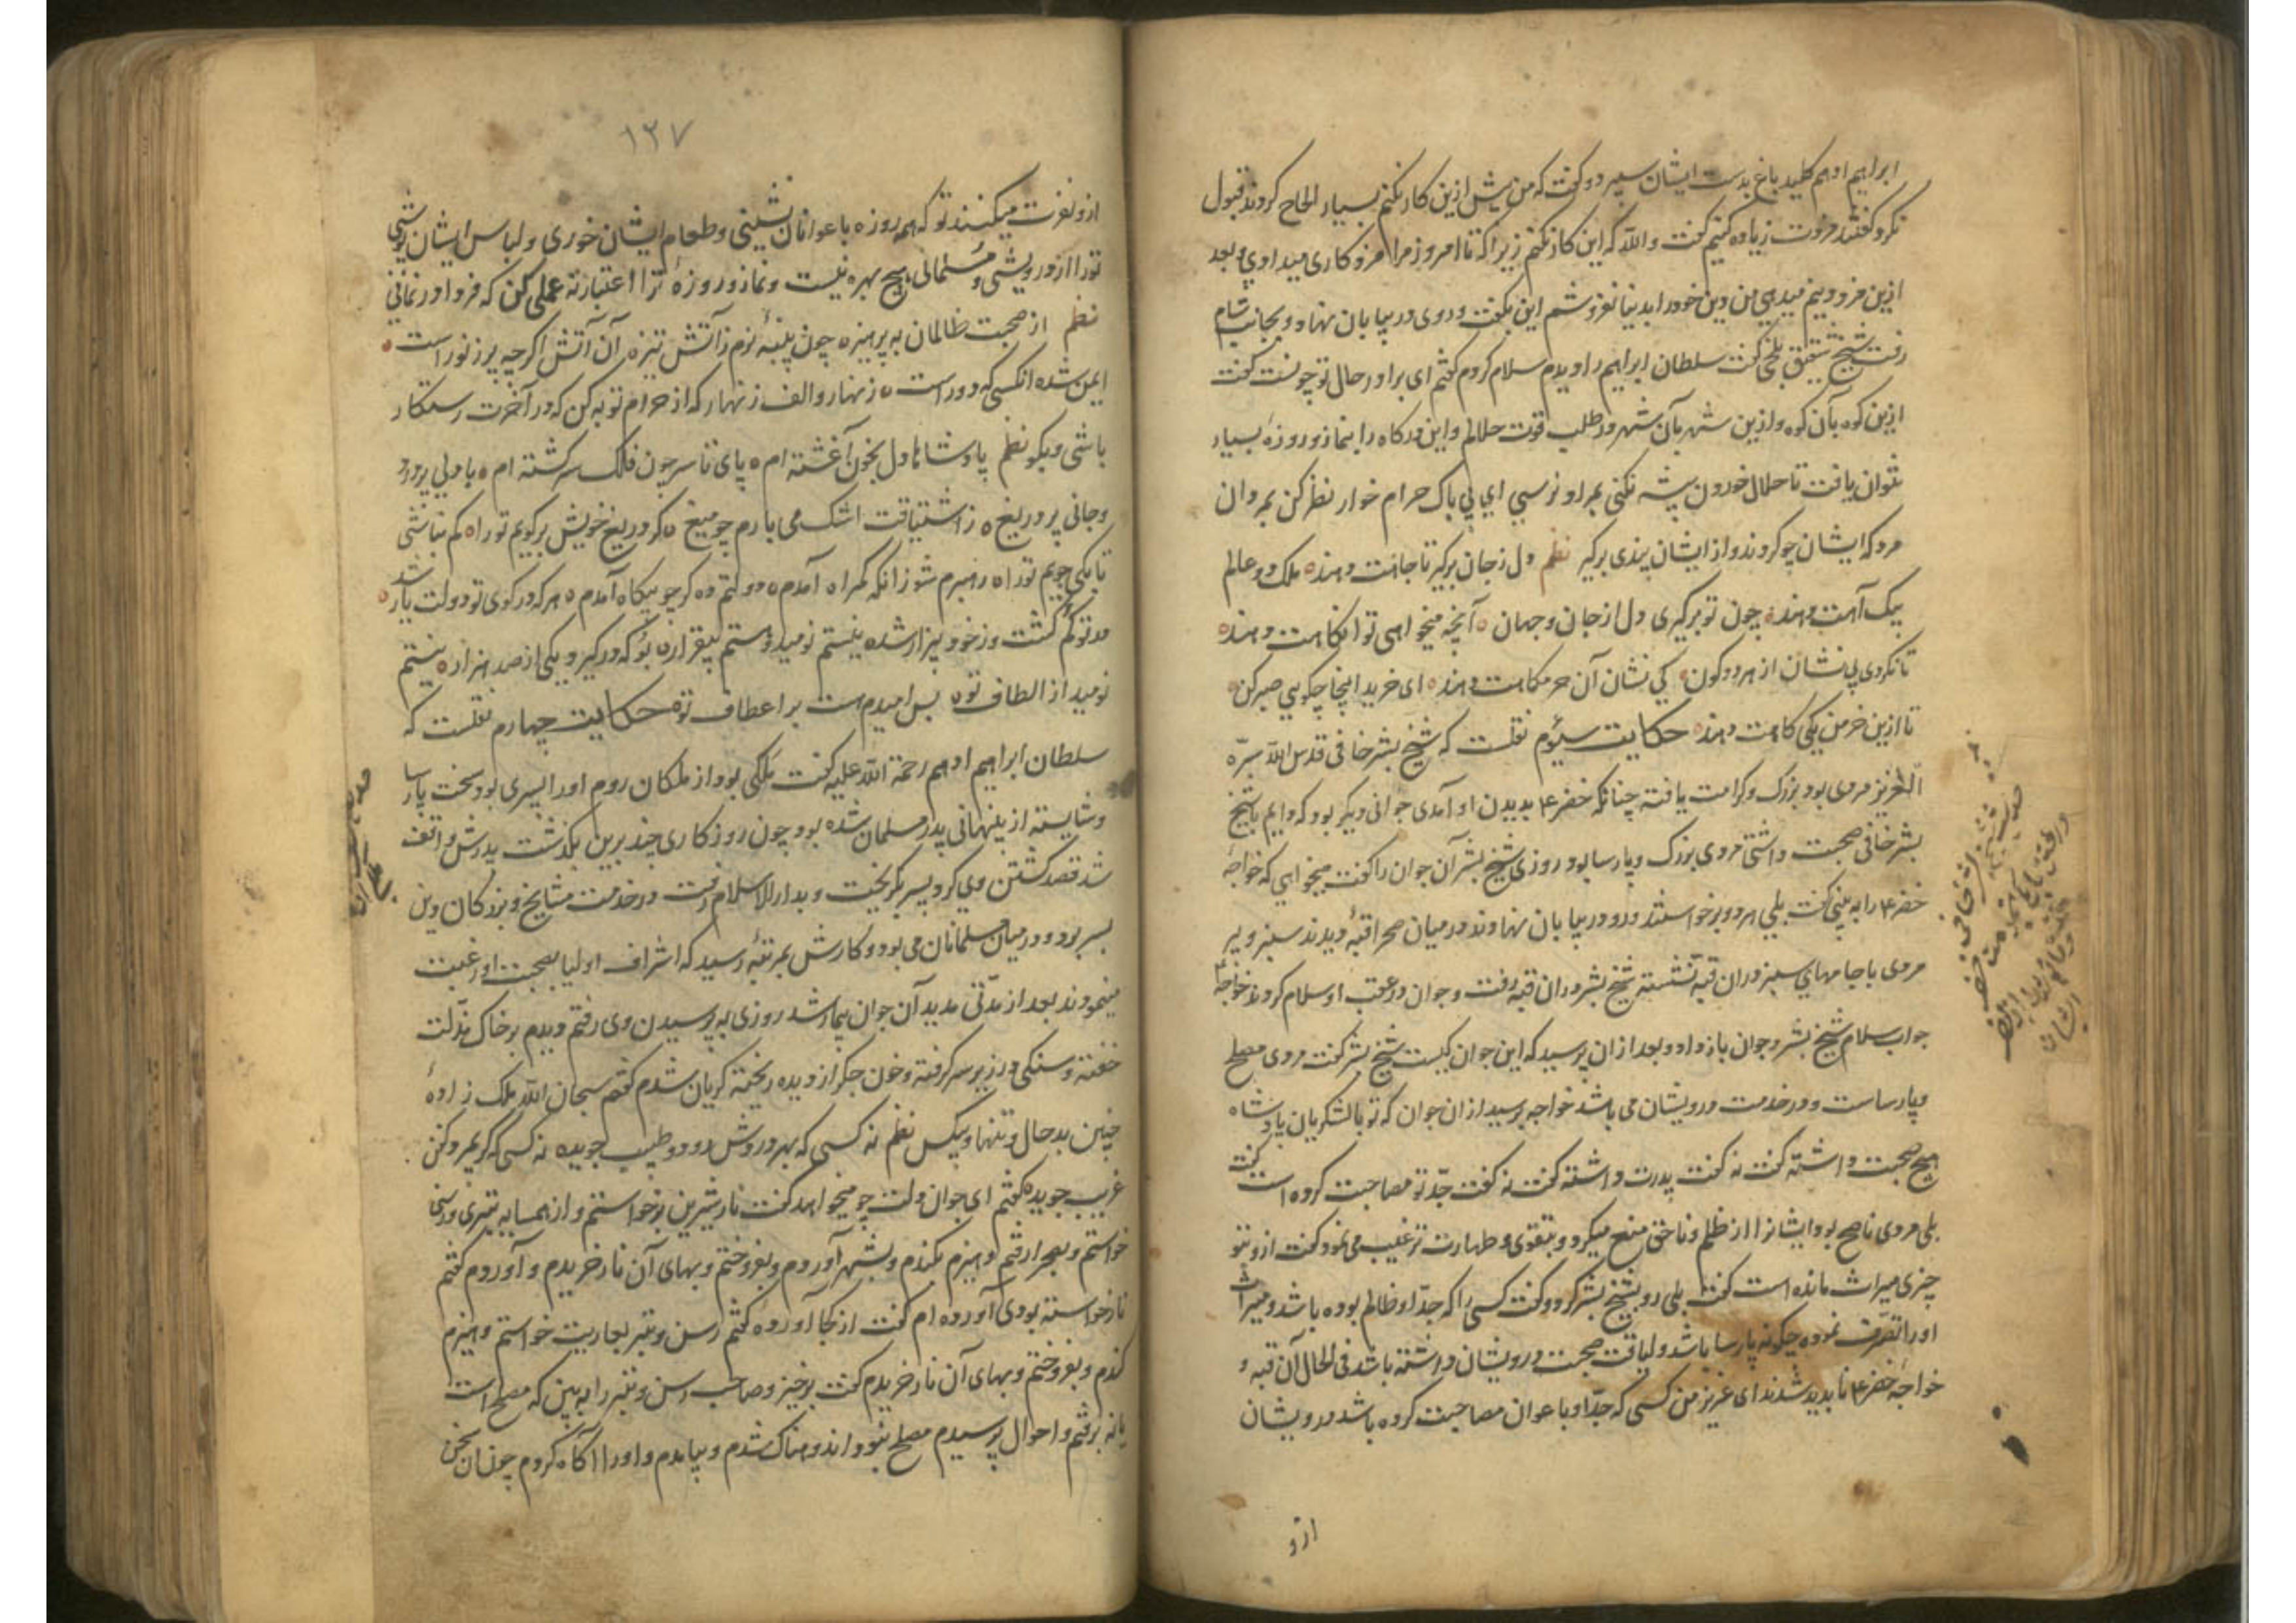 ابراهیم ادهم کلید باغ بدست ایشان سپرد و گفت که من بیش ازین کار نکنم بسیار الحاح کردند قبول
نکرد گفتند مزدت زیاده کنیم گفت والله که این کار نکنم زیرا که تا امروز مرا مزد کاری میدادی و بعد
ازین مزد دینم میدهی من دین خود را بدنیا نفروشم این بگفت و روی در بیابان نهاد و بجانب شام
رفت شیخ شقیق بلخی گفت سلطان ابراهیم را دیدم سلام کردم گفتم ای برادر حال تو چونست گفت
ازین کوه بآن کوه و ازین شهر بآن شهر در طلب قوت حلالم و این درگاه را بنماز و روزهٔ بسیار
نتوان یافت تا حلال خوردن پیشه نکنی بمراد نرسی ای بی باک حرام خوار نظر کن بمردان
مرد که ایشان چو کردند و از ایشان پندی برگیر نظم دل ز جان برگیر تا جانت دهند ملک دو عالم
بیک آهت دهند چون تو برگیری دل از جان و جهان آنچه میخواهی تو آنگاهت دهند
تا نگردی بی نشان از هر دو کون کی نشان آن حرمگاهت دهند ای خرید اینجا چکویی صبر کن
تا ازین خرمن یکی کاهت دهند حکایت سیوم نقلست که شیخ بشر خافی قدس الله سرّه
العزیز مردی بود بزرگ و کرامت یافته چنانکه خضر ع بدیدن او آمدی جوانی دیگر بود که دایم با شیخ
بشر خافی صحبت داشتی مردی بزرگ و پارسا بود روزی شیخ بشر آن جوان را گفت میخواهی که خواجهٔ
خضر ع را به بینی گفت بلی هر دو برخواستند و رو در بیابان نهادند در میان صحرا قبهٔ دیدند سبز و پیر
مردی با جامهای سبز در آن قبه نشسته شیخ بشر در ان قبه رفت و جوان در عقب او سلام کردند خواجهٔ
جواب سلام شیخ بشر و جوان باز داد و بعد از ان پرسید که این جوان کیست شیخ بشر گفت مردی مصلح
و پارساست و در خدمت درویشان می باشد خواجه پرسید از ان جوان که تو با لشکریان پادشاه
هیچ صحبت داشتهٔ گفت نه گفت پدرت داشته گفت نه گفت جدّ تو مصاحبت کرده است گفت
بلی مردی ناصح بود ایشانرا از ظلم و ناحق منع میکرد و بتقوی و طهارت ترغیب می نمود گفت از و بتو
چیزی میراث مانده است گفت بلی رو بشیخ بشر کرد و گفت کسی را که جدّ او ظالم بوده باشد و میراث
او را تصرّف نموده چگونه پارسا باشد و لیاقت صحبت درویشان داشته باشد فی الحال آن قبه و
خواجه خضر ع ناپدید شدند ای عزیز من کسی که جدّ او با عوان مصاحبت کرده باشد درویشان
ازو
۱۲۷
ازو نفرت میکنند تو که همه روزه با عوانان نشینی و طعام ایشان خوری و لباس ایشان پوشی
تو را از درویشی و مسلمانی هیچ بهره نیست و نماز و روزهٔ ترا اعتبار نه عملی کن که فردا در نمانی
نظم از صحبت ظالمان به پرهیز چون پنبهٔ نرم ز آتش تیز آن آتش اگر چه پر ز نور است
ایمن شده آنکسی که دور است زنهار و الف زنهار که از حرام توبه کن که در آخرت رستگار
باشی و بگو نظم پادشاها دل بخون آغشته ام پای تا سر چون فلک سرگشته ام با دلی پر درد
و جانی پر دریغ ز اشتیاقت اشک می بارم چو میغ گر دریغ خویش برگویم تو را گم نباشی
تا بکی جویم تو را رهبرم شو زانکه گمراه آمدم دولتم ده گر چو بیگاه آمدم هر که در کوی تو دولت یار شد
در تو گم گشت و ز خود بیزار شد نیستم نومید و هستم بیقرار بو که در گیرد یکی از صد هزار نیستم
نومید از الطاف تو بس امیدم هست بر اعطاف تو حکایت چهارم نقلست که
سلطان ابراهیم ادهم رحمة الله علیه گفت ملکی بود از ملکان روم او را پسری بود سخت پارسا
و شایسته از پنهانی پدر مسلمان شده بود چون روزکاری چند برین بگذشت پدرش واقف
شد قصد کشتن وی کرد پسر بگریخت و بدارالاسلام رفت در خدمت مشایخ و بزرکان دین
بسر بود و در میان مسلمانان می بود و کارش بمرتبهٔ رسید که اشراف اولیا بصحبت او رغبت
مینمودند بعد از مدّتی مدید آن جوان بیمار شد روزی به پرسیدن وی رفتم دیدم بر خاک مذلت
خفته و سنکی در زیر سر گرفته و خون جگر از دیده ریخته گریان شدم گفتم سبحان الله ملک زادهٔ
چنین بدحال و تنها و بیکس نظم نه کسی که بهر دردش رود و طبیب جوید نه کسی که گر بمیرد کفن
غریب جوید گفتم ای جوان دلت چو میخواهد گفت نار شیرین برخواستم و از همسایه تبری و رسنی
خواستم و بصحرا رفتم و هیزم بکندم و بشهر آوردم و بفروختم و بهای آن نار خریدم و آوردم گفتم
نار خواسته بودی آورده ام گفت از کجا آوردهٔ گفتم رسن و تبر بعاریت خواستم و هیزم
کندم و بفروختم و بهای آن نار خریدم گفت برخیز و صاحب رسن و تبر را به بین که مصلح است
یا نه برفتم و احوال پرسیدم مصلح نبود اندوهناک شدم و بیامدم و او را آگاه کردم چون آن سخن